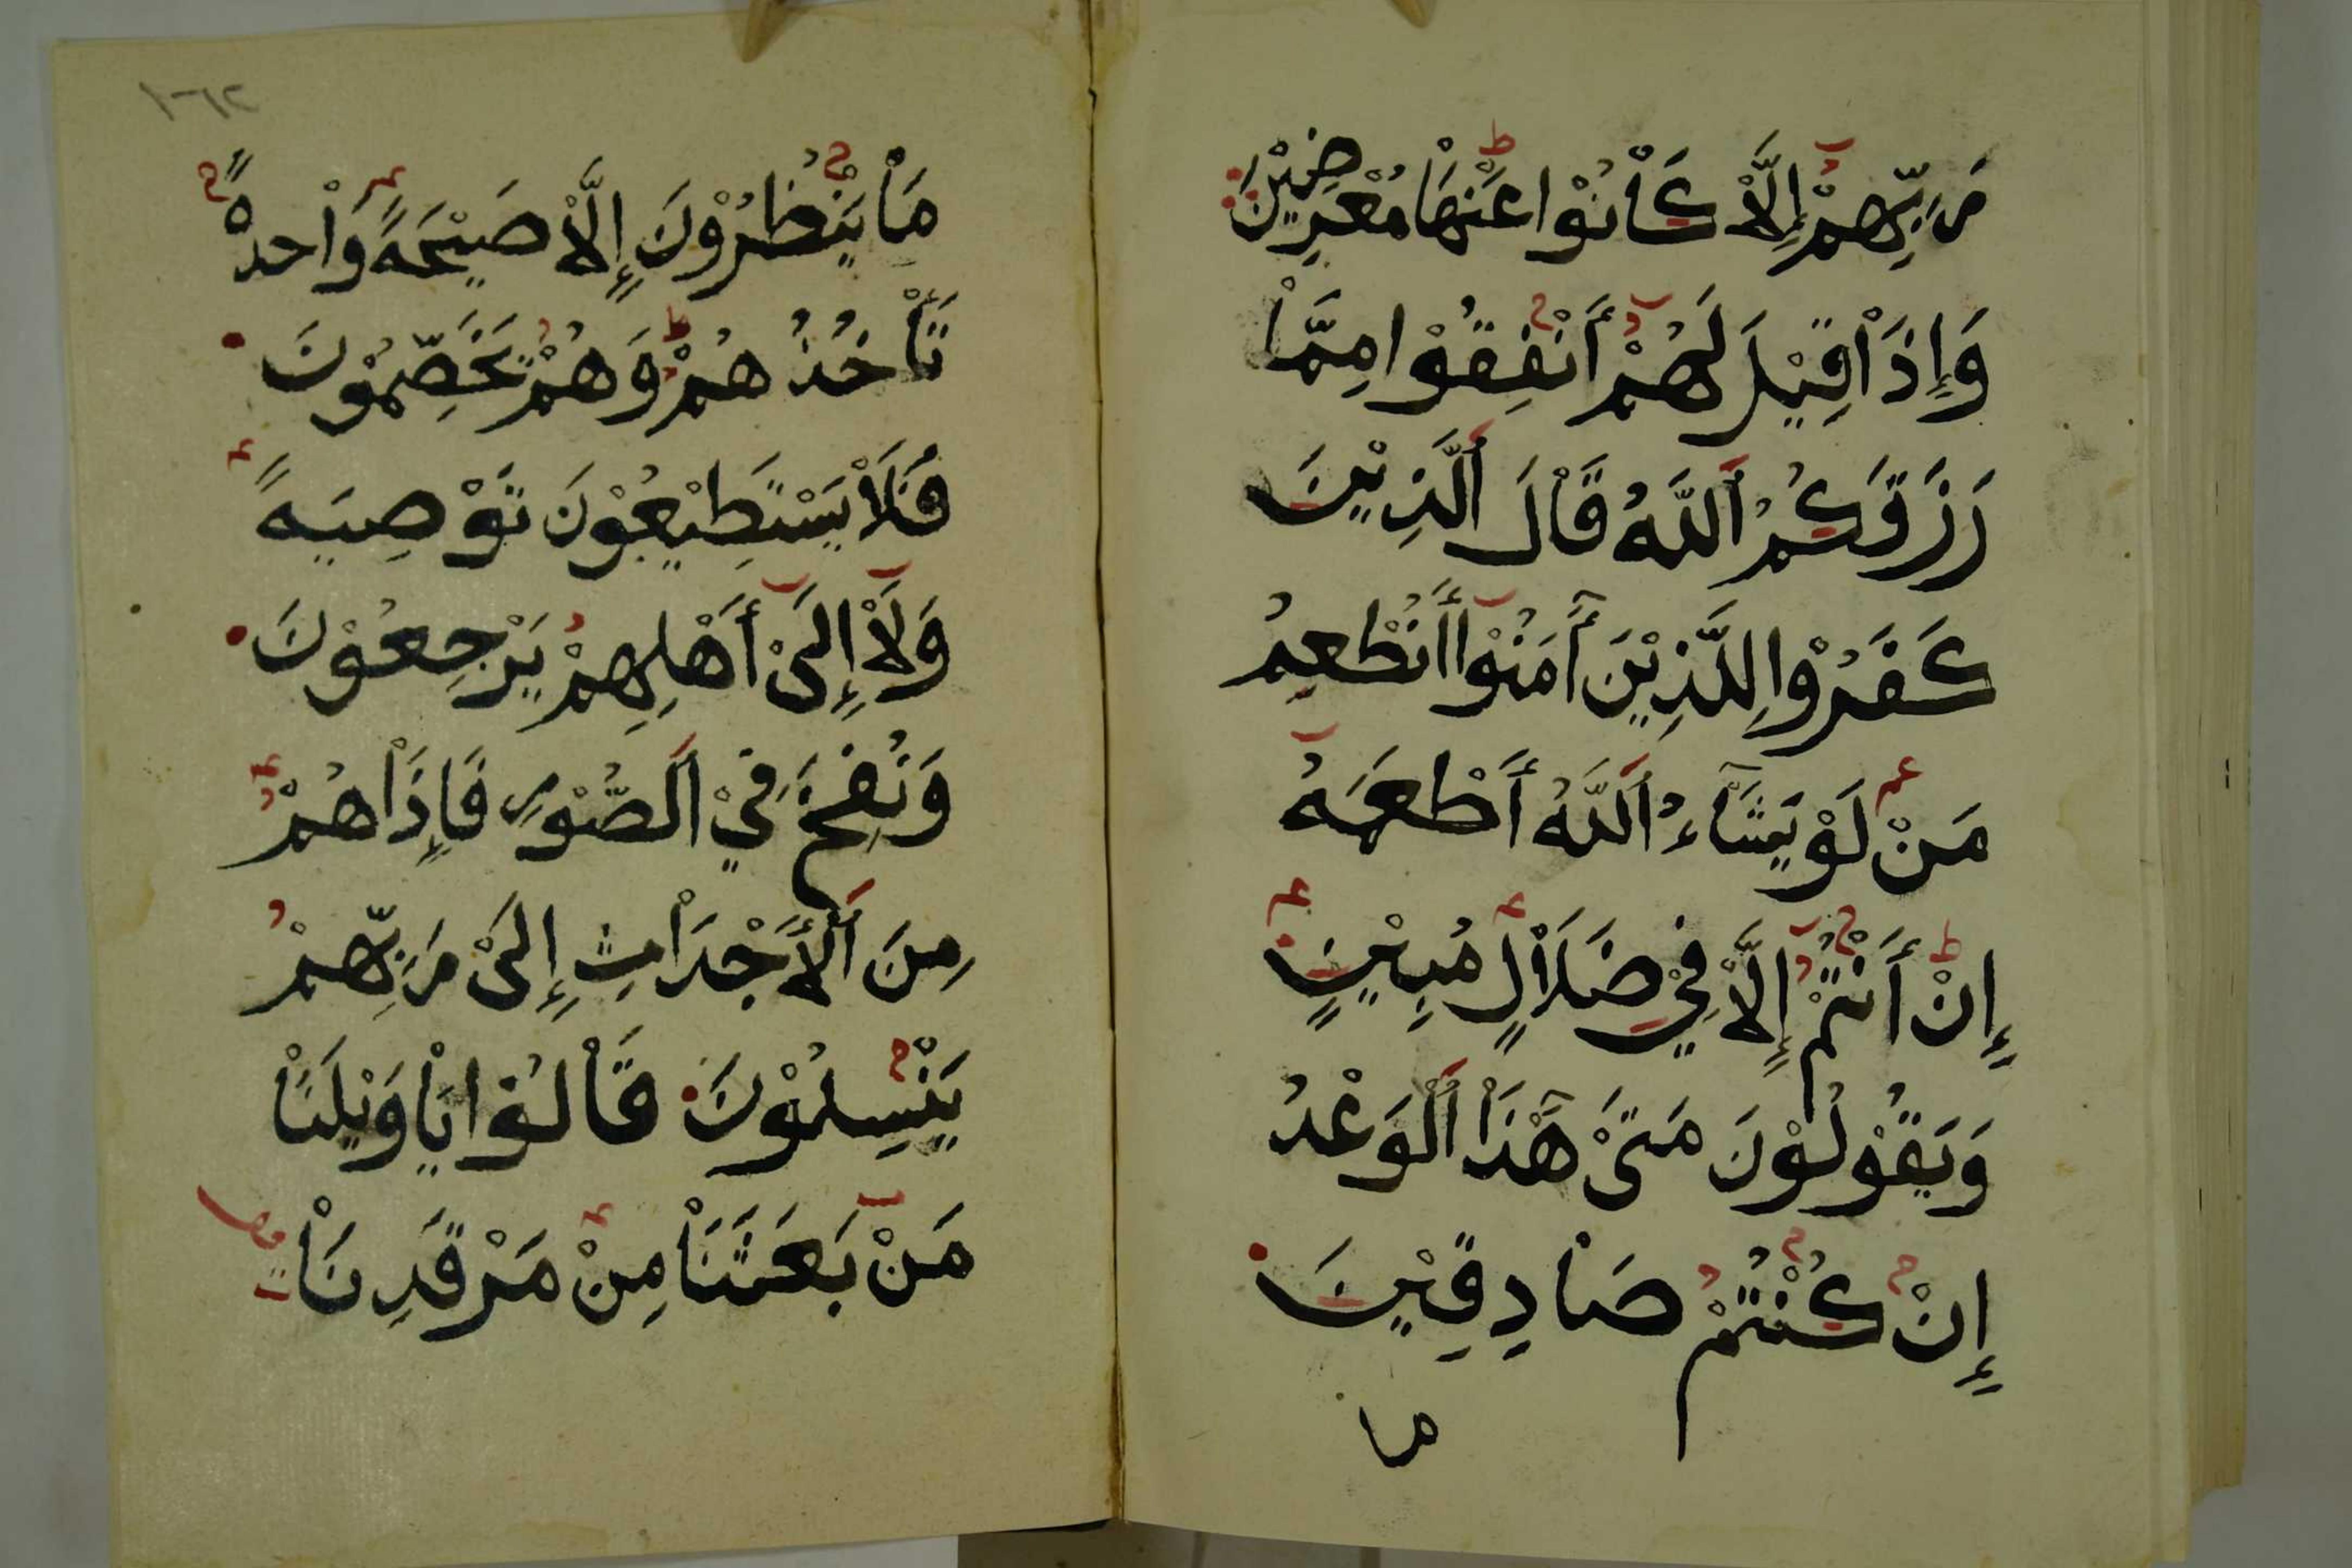 رَبِّهِمْ إِلَّاْ كَاْنُوْا عَنْهَاْ مُعْرِضِيْنَ
وَإِذَاْ قِيْلَ لَهُمْ أَنْفِقُوْا مِمَّاْ
رَزَقَكُمُ اَللَّهُ قَاْلَ اَلَّذِيْنَ
كَفَرُوْا لِلَّذِيْنَ أٓمَنُوْا أَنُطْعِمُ
مَنْ لَوْ يَشَآءُ اَللَّهُ أَطْعَمَهُ
إِنْ أَنْتُمْ إِلَّاْ فِيْ ضَلَاْلٍ مُبِيْنٍ
وَيَقُوْلُوْنَ مَتَىْ هَٓذَاْ اَلْوَعْدُ
إِنْ كُنْتُمْ صَاْدِقِيْنَ
ما
١٦٢
مَاْ يَنْظُرُوْنَ إِلَّاْ صَيْحَةً وَاْحدةً
تَأْخُذُهُمْ وَهُمْ يَخَصِّمُوْنَ
فَلَاْ يَسْتَطِيْعُوْنَ تَوْصِيَةً
وَلَاْ إِلَىْ أَهْلِهِمْ يَرْجِعُوْنَ
وَنُفِخَ فِيْ اَلصُّوْرِ فَإِذَاْ هُمْ
مِنَ اَلْأَجْدَاْثِ إِلَىْ رَبِّهِمْ
يَنْسِلُوْنَ قَاْلُوْا يَاْوَيْلَنَاْ
مَنْ بَعَثَنَاْ مِنْ مَرْقَدِنَاْ